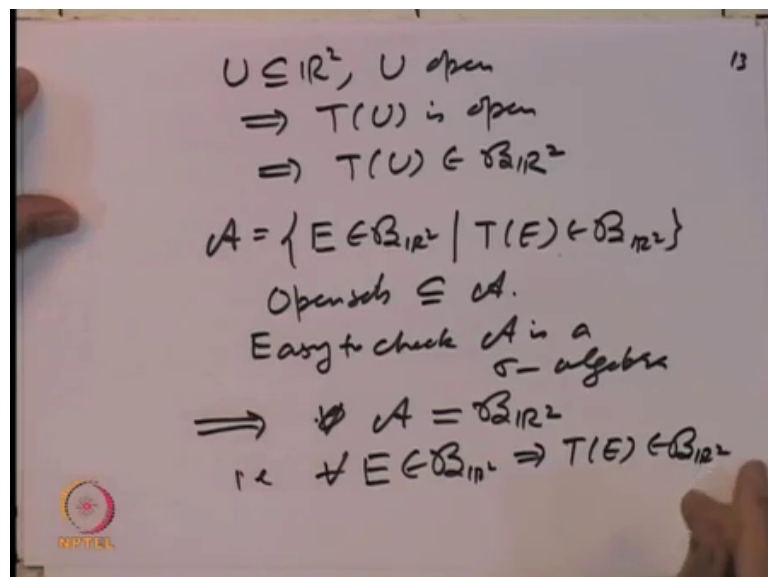 13
U ⊆ ℝ², U open
⟹ T(U) is open
⟹ T(U) ∈ 𝓑ℝ²
𝒜 = { E ∈ 𝓑ℝ² | T(E) ∈ 𝓑ℝ² }
Open sets ⊆ 𝒜.
Easy to check 𝒜 is a
σ- algebra
⟹ 𝒜 = 𝓑ℝ²
i.e ∀ E ∈ 𝓑ℝ² ⇒ T(E) ∈ 𝓑ℝ²
NPTEL